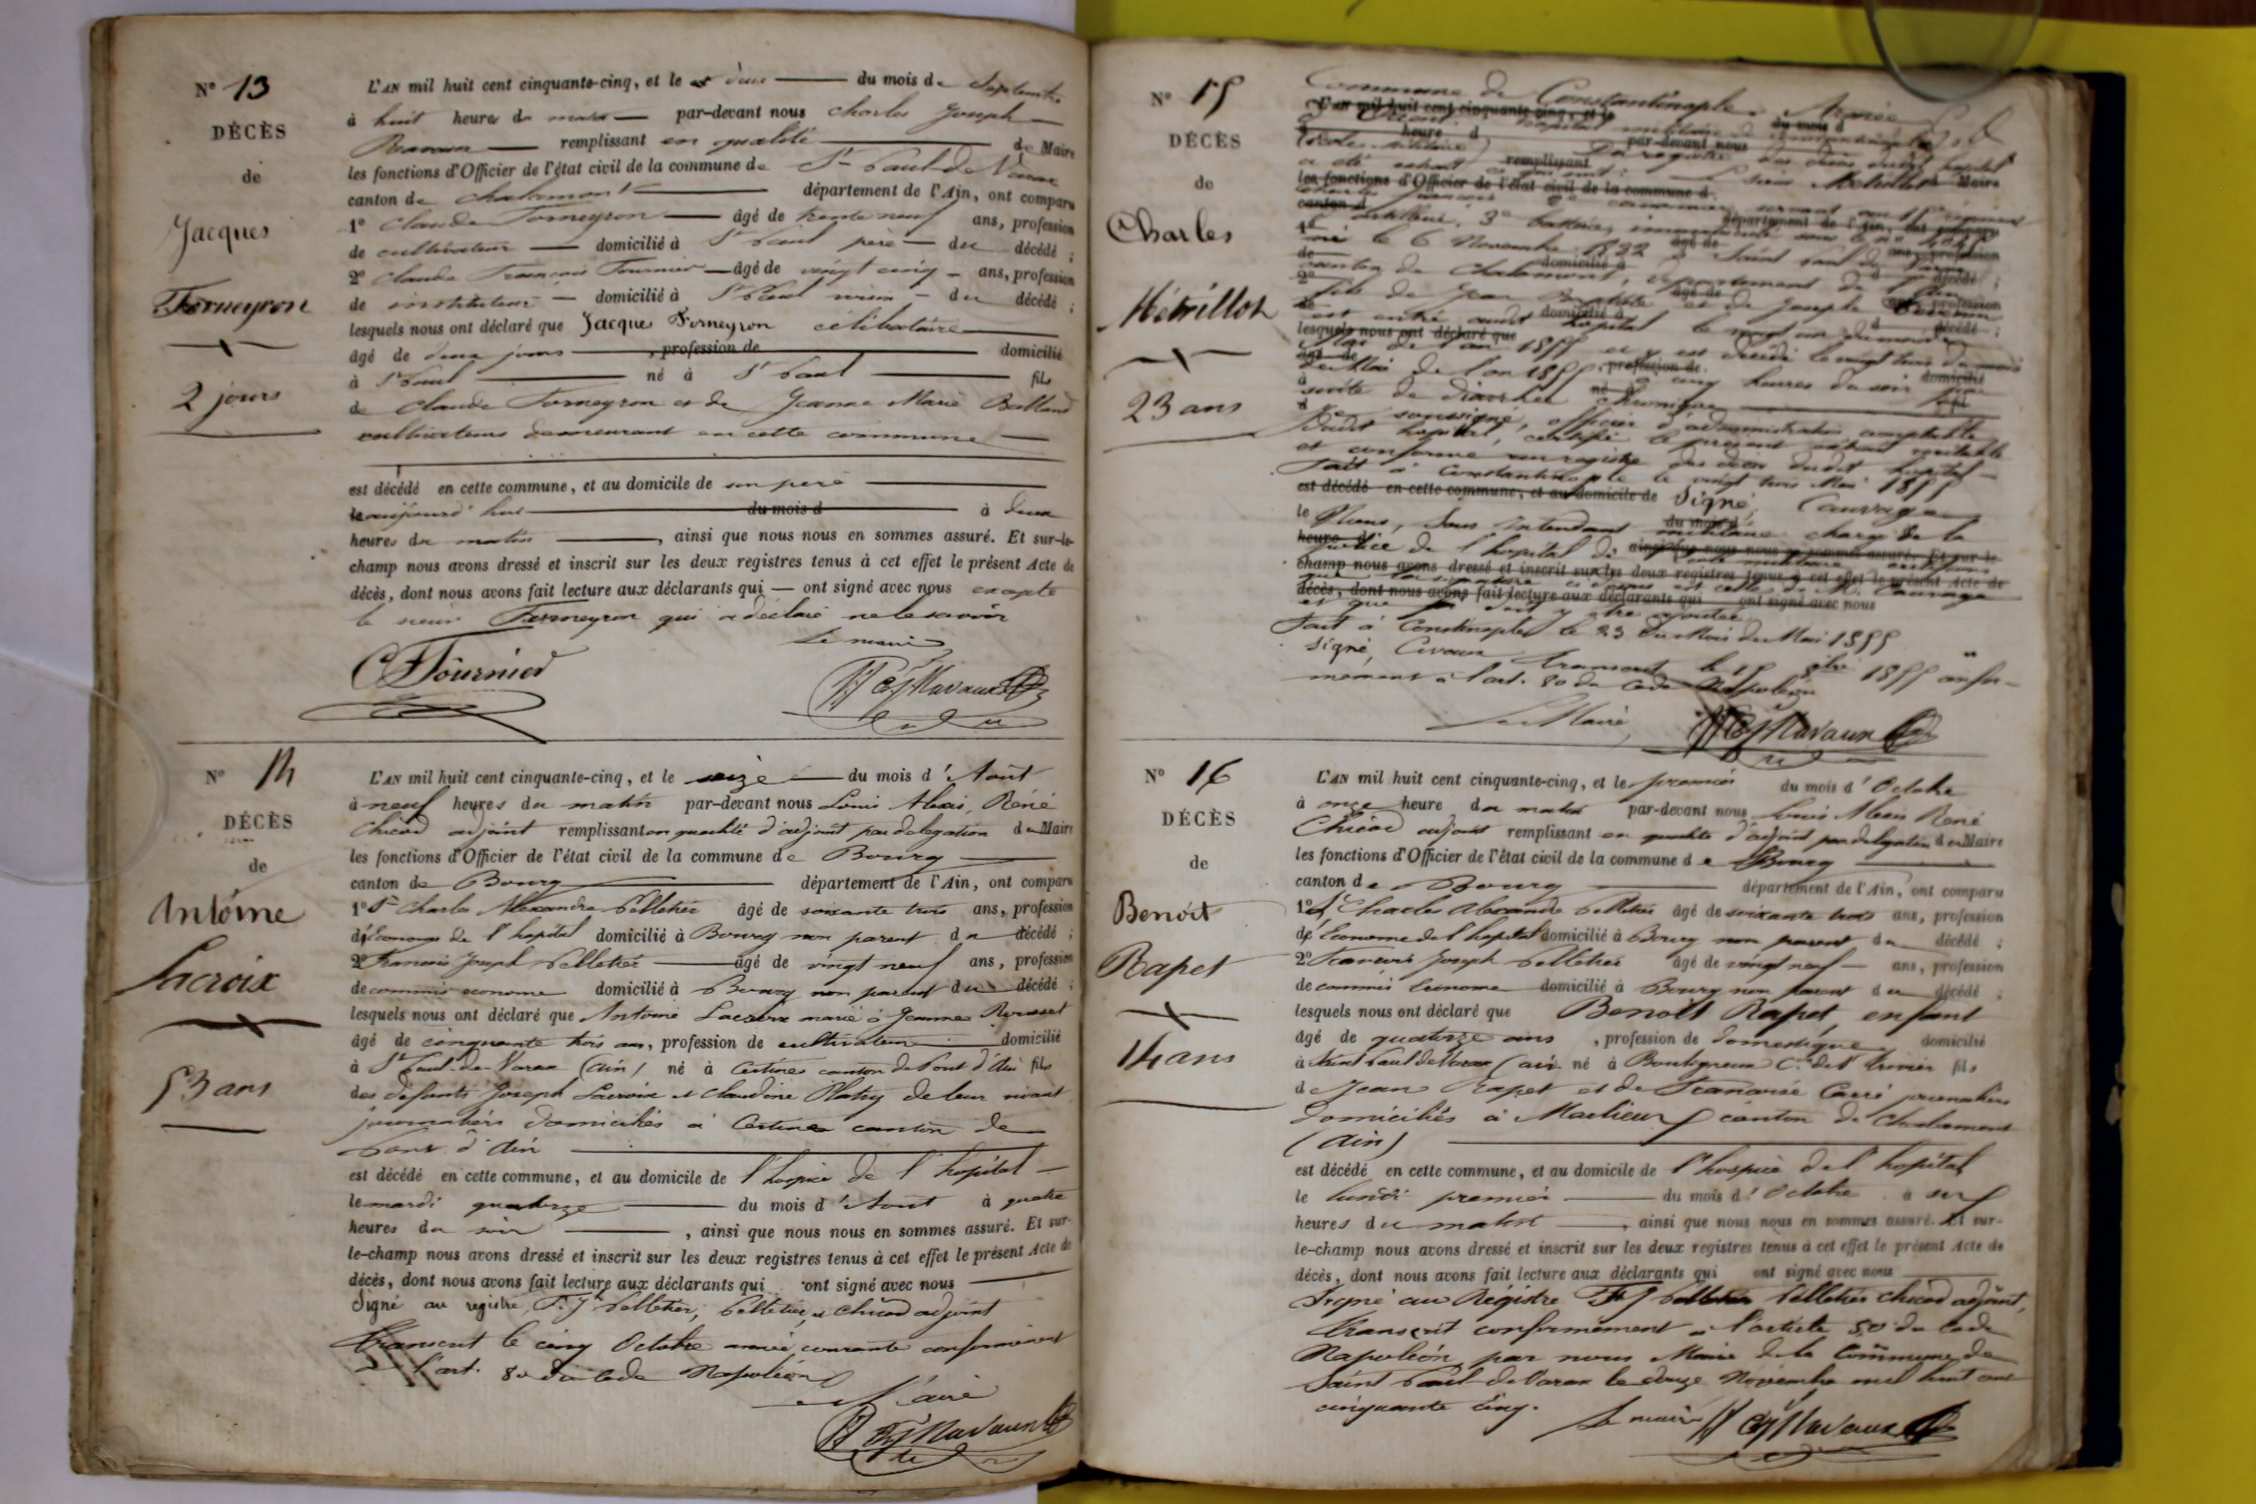 N° 13
DÉCÈS
de
Jacques
Forneyron
2 jours
L'AN mil huit cent cinquante-cinq, et le deux du mois de Septembre
à huit heures du matin par-devant nous Charles Joseph
Ravaux remplissant en qualité de Maire
les fonctions d'Officier de l'état civil de la commune de St Paul-de-Varax
canton de Chalamont département de l'Ain, ont comparu
1° Claude Forneyron âgé de trente neuf ans, profession
de cultivateur domicilié à St Paul père du décédé ;
2° Claude François Fournier âgé de vingt cinq ans, profession
de instituteur domicilié à St Paul voisin du décédé ;
lesquels nous ont déclaré que Jacques Forneyron célibataire
âgé de deux jours , profession de domicilié
à St Paul né à St Paul fils
de Claude Forneyron et de Jeanne Marie Balland
cultivateurs demeurant en cette commune
est décédé en cette commune, et au domicile de son père
le aujourd'hui du mois d à deux
heures du matin , ainsi que nous nous en sommes assuré. Et sur-le-
champ nous avons dressé et inscrit sur les deux registres tenus à cet effet le présent Acte de
décès, dont nous avons fait lecture aux déclarants qui — ont signé avec nous excepté
le sieur Forneyron qui a déclaré ne le savoir
Le maire
C Fournier
N° 14
DÉCÈS
de
Antoine
Lacroix
53 ans
L'AN mil huit cent cinquante-cinq, et le seize du mois d'Août
à neuf heures du matin par-devant nous Louis Alexis, René
Chicod adjoint remplissant en qualité d'adjoint par délégation du Maire
les fonctions d'Officier de l'état civil de la commune de Bourg
canton de Bourg département de l'Ain, ont comparu
1° Sr Charles Alexandre Pelletier âgé de soixante trois ans, profession
d'Econome de l'hopital domicilié à Bourg non parent du décédé ;
2° François Joseph Pelletier âgé de vingt neuf ans, profession
de commis econome domicilié à Bourg non parent du décédé ;
lesquels nous ont déclaré que Antoine Lacroix marié à Jeanne Rousset
âgé de cinquante trois ans, profession de cultivateur domicilié
à St Paul-de-Varax (Ain) né à Certines canton de Pont d'Ain fils
des défunts Joseph Lacroix et Claudine Platry de leur vivant
journaliers domiciliés à Certines canton de
Pont d'Ain
est décédé en cette commune, et au domicile de l'hospice de l'hopital
le mardi quatorze du mois d'Aout à quatre
heures du soir , ainsi que nous nous en sommes assuré. Et sur-
le-champ nous avons dressé et inscrit sur les deux registres tenus à cet effet le présent Acte de
décès, dont nous avons fait lecture aux déclarants qui ont signé avec nous
Signé au registre, F. Jh Pelletier, Pelletier, et Chicod adjoint
Transcrit le cinq Octobre année courante conformément
à l'art. 80 du Code Napoléon
Le Maire
N° 15
DÉCÈS
de
Charles
Métrillot
23 ans
Commune de Constantinople. Armée
d'Orient hopital militaire
L'AN mil huit cent cinquante-cinq, et le
du mois d
heure d
par-devant nous
remplissant
les fonctions d'Officier de l'état civil de la commune d Maire
canton d département de l'Ain, ont comparu
3e batterie
né le 6 Novembre 1832 à Saint Paul de Varax
canton de Chalamont, département de l'Ain
fils de Jean Baptiste et de Josephe
est entré audit hopital le vingt un du mois de
lesquels nous ont déclaré que
Mai de l'an 1855 et y est décédé le vingt trois du mois
de Mai de l'an 1855 à cinq heures du soir par
suite de diarrhée chronique
Je soussigné, officier d'administration comptable
dudit hopital, certifie le présent extrait véritable
et conforme au registre des décès dudit hopital
Fait à Constantinople le vingt trois Mai 1855
est décédé en cette commune, et au domicile de Signé, Cauvrage
Nous, Sous Intendant militaire chargé de la
police de l'hopital de
champ nous avons dressé et inscrit sur les deux registres tenus à cet effet le présent Acte de
que la signature ci-dessus est celle de M. Cauvrage
décès, dont nous avons fait lecture aux déclarants qui ont signé avec nous
et que foi doit y être ajoutée
Fait à Constinople le 23 du Mois de Mai 1855
signé, transcrit le 15 1855 confor-
mément à l'art. 80 du Code Napoléon
Le Maire,
N° 16
DÉCÈS
de
Benoit
Rapet
14 ans
L'AN mil huit cent cinquante-cinq, et le premier du mois d'Octobre
à onze heure du matin par-devant nous Louis Alexis René
Chicod adjoint remplissant en qualité d'adjoint par délégation du Maire
les fonctions d'Officier de l'état civil de la commune de Bourg
canton de Bourg département de l'Ain, ont comparu
1° Sr Charles Alexandre Pelletier âgé de soixante trois ans, profession
d'Econome de l'hopital domicilié à Bourg non parent du décédé ;
2° François Joseph Pelletier âgé de vingt neuf ans, profession
de commis Econome domicilié à Bourg non parent du décédé ;
lesquels nous ont déclaré que Benoit Rapet, enfant
âgé de quatorze ans , profession de domestique domicilié
à Saint Paul de Varax (ain) né à Bouligneux Cn de St Trivier fils
de Jean Rapet et de Françoise Carré journaliers
domiciliés à Marlieux canton de Chalamont
(Ain)
est décédé en cette commune, et au domicile de l'hospice de l'hopital
le lundi premier du mois d'Octobre à
heures du matin , ainsi que nous nous en sommes assuré. Et sur-
le-champ nous avons dressé et inscrit sur les deux registres tenus à cet effet le présent Acte de
décès, dont nous avons fait lecture aux déclarants qui ont signé avec nous
Signé au Régistre F J Pelletier Pelletier Chicod adjoint,
Transcrit conformément à l'article 80 du Code
Napoléon par nous Maire de la Commune de
Saint Paul de Varax le douze Novembre mil huit cent
cinquante cinq.
Le maire